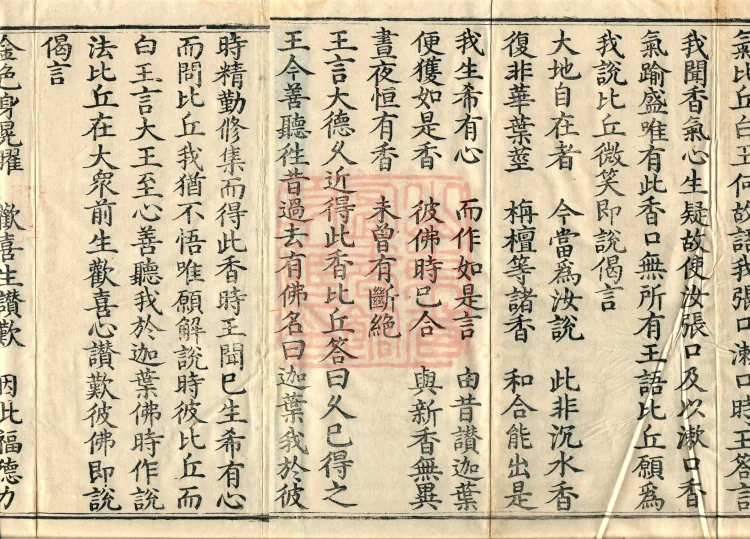 氣比丘白王何故語我張口漱口時王答言
我聞香氣心生疑故使汝張口及以漱口香
氣踰盛唯有此香口無所有王語比丘願為
我說比丘微笑即說偈言
大地自在者 今當為汝說 此非沉水香
復非華葉莖 栴檀等諸香 和合能出是
我生希有心 而作如是言 由昔讚迦葉
便獲如是香 彼佛時已合 與新香無異
晝夜恒有香 未曾有斷絕
王言大德久近得此香比丘答曰久已得之
王今善聽徃昔過去有佛名曰迦葉我於彼
時精勤修集而得此香時王聞已生希有心
而問比丘我猶不悟唯願解說時彼比丘而
白王言大王至心善聽我於迦葉佛時作說
法比丘在大衆前生歡喜心讃歎彼佛即說
偈言
金色身晃曜 歡喜生讃歎 因此福德力